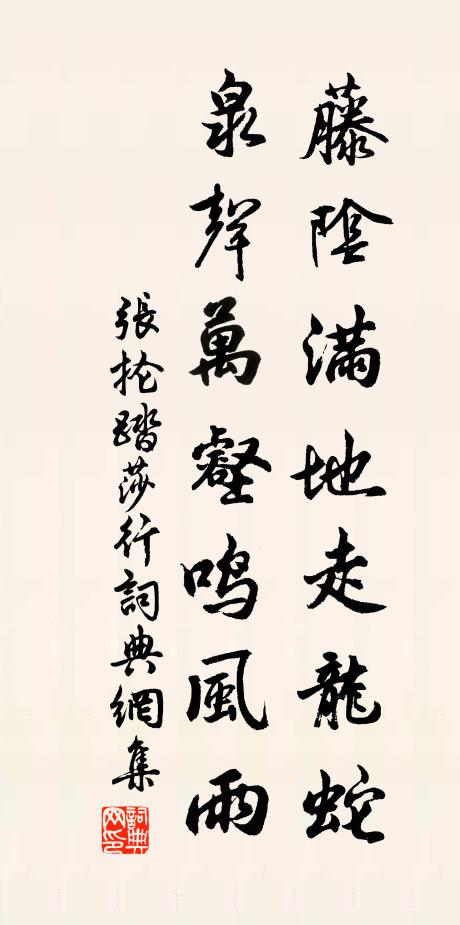 藤陰滿地走龍蛇
泉聲萬壑鳴風雨
張抡踏莎行詞典網集
詞典網印